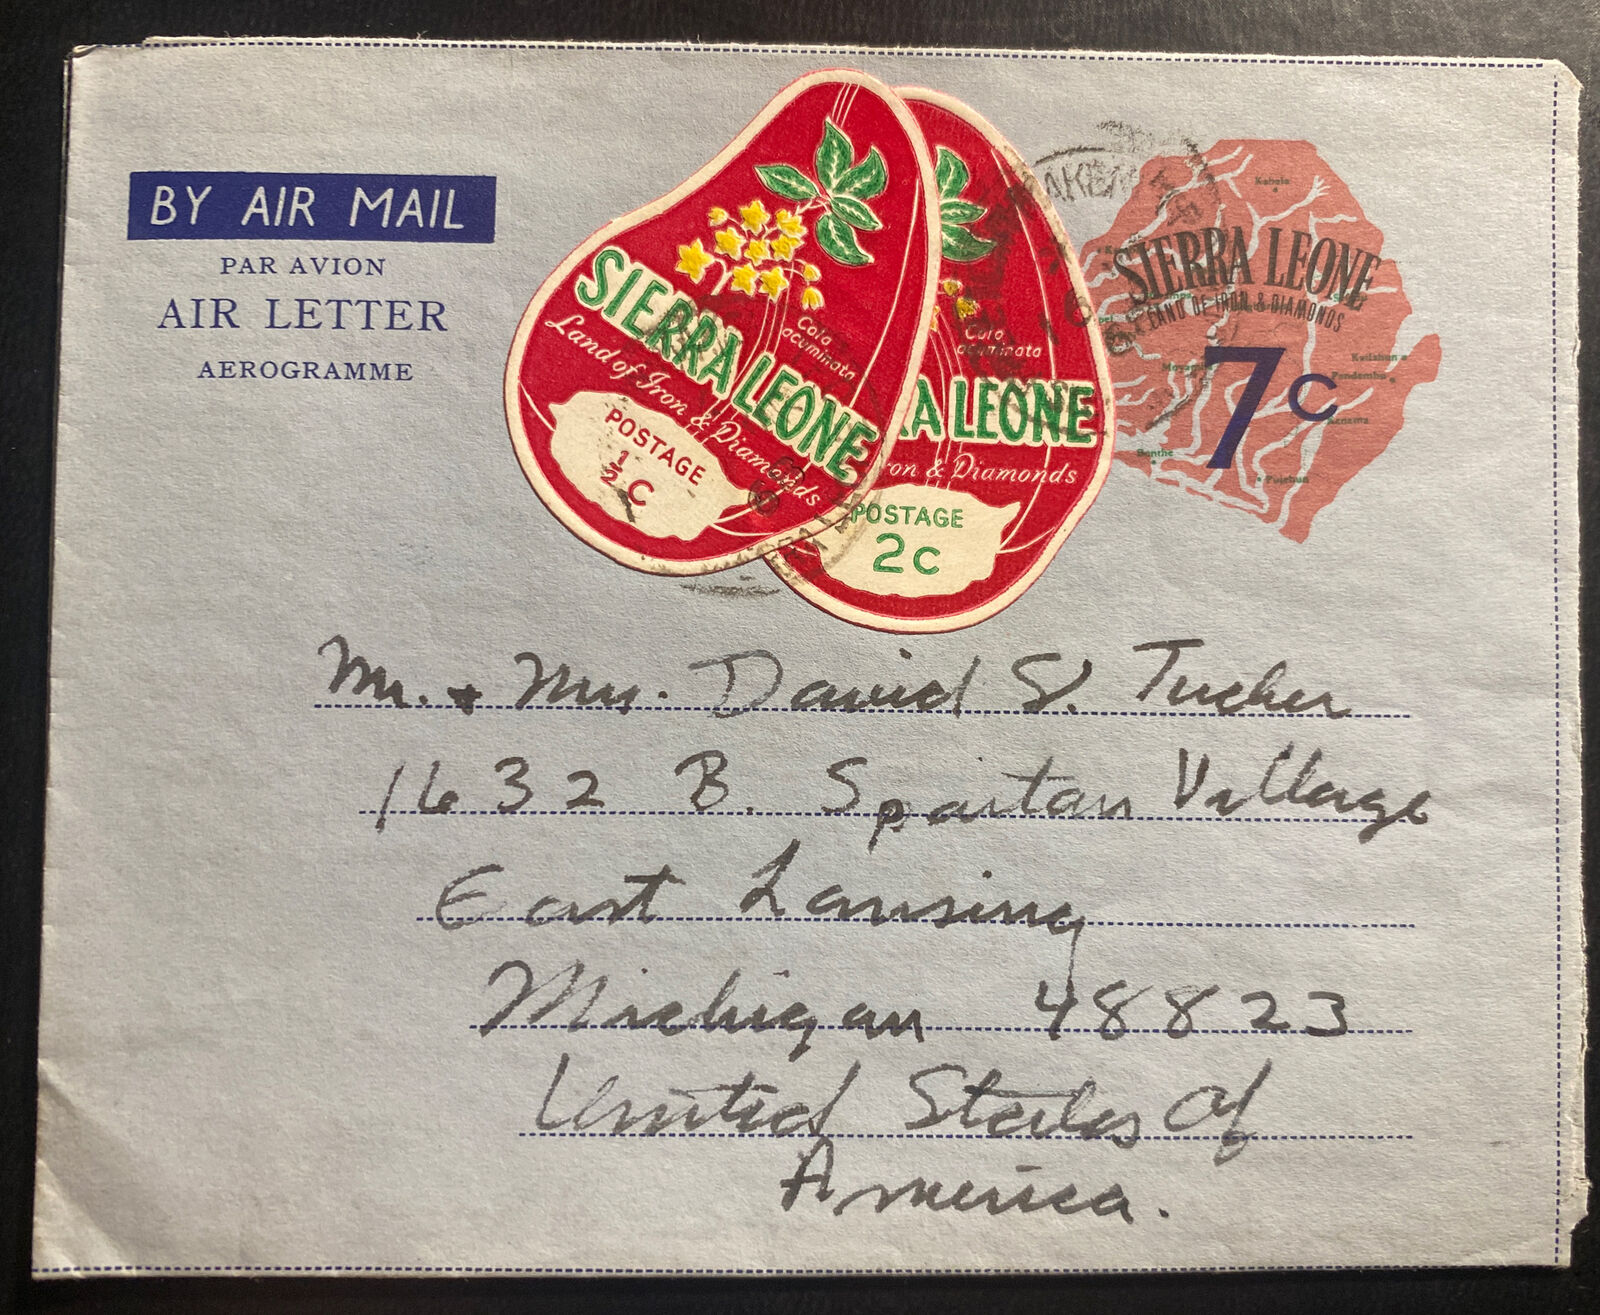 BY AIR MAIL
PAR AVION
AIR LETTER
AEROGRAMME
Cola
acuminata
SIERRA LEONE
Land of Iron & Diamonds
POSTAGE
½ C
Cola
acuminata
A LEONE
ron & Diamonds
POSTAGE
2c
Kabala
SIERRA LEONE
LAND OF IRON & DIAMONDS
7c
Kailahun
Pendembu
Bonthe
Pujehun
Mr. + Mrs. David S. Tucker
1632 B. Spartan Village
East Lansing
Michigan 48823
United States Of
America.